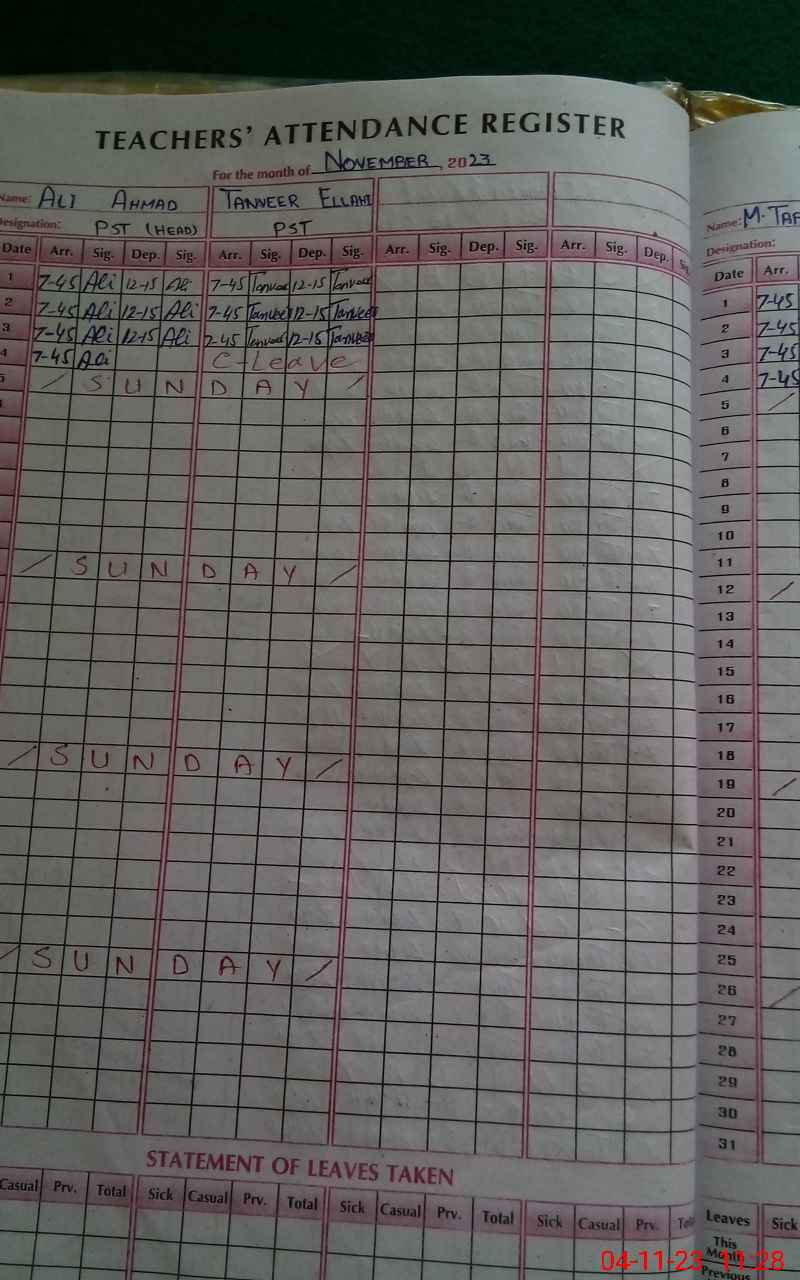 TEACHERS' ATTENDANCE REGISTER
For the month of NOVEMBER, 2023
Name: ALI AHMAD TANVEER ELLAHI
Designation: PST (HEAD) PST
Date Arr. Sig. Dep. Sig. Arr. Sig. Dep. Sig. Arr. Sig. Dep. Sig. Arr. Sig. Dep.
1 7-45 Ali 12-15 Ali 7-45 Tanveer 12-15 Tanveer
2 7-45 Ali 12-15 Ali 7-45 Tanveer 12-15 Tanveer
3 7-45 Ali 12-15 Ali 7-45 Tanveer 12-15 Tanveer
4 7-45 Ali C-Leave
5 / S U N D A Y /
/ S U N D A Y /
/ S U N D A Y /
/ S U N D A Y /
STATEMENT OF LEAVES TAKEN
Casual Prv. Total Sick Casual Prv. Total Sick Casual Prv. Total Sick Casual Prv.
Name: M.
Designation:
Date Arr.
1 7-45
2 7-45
3 7-45
4 7-45
5 /
6
7
8
9
10
11
12 /
13
14
15
16
17
18
19 /
20
21
22
23
24
25
26 /
27
28
29
30
31
Leaves Sick
This
Month
Previous
04-11-23 11:28